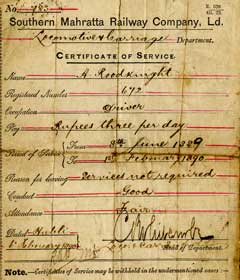 No 783
E. 539
Southern Mahratta Railway Company, Ld.
Locomotive & Carriage Department.
CERTIFICATE OF SERVICE.
Name A. Roodknight
Registered Number 672
Occupation Driver
Pay Rupees three per day
Period of Service From 8th June 1889
To 1st February 1890
Reason for leaving Services not required
Conduct Good
Attendance Fair
Dated Hubli
1st February 1890
Loco & Carr Head of Department.
Note.—Certificates of Service may be withheld in the undermentioned cases: